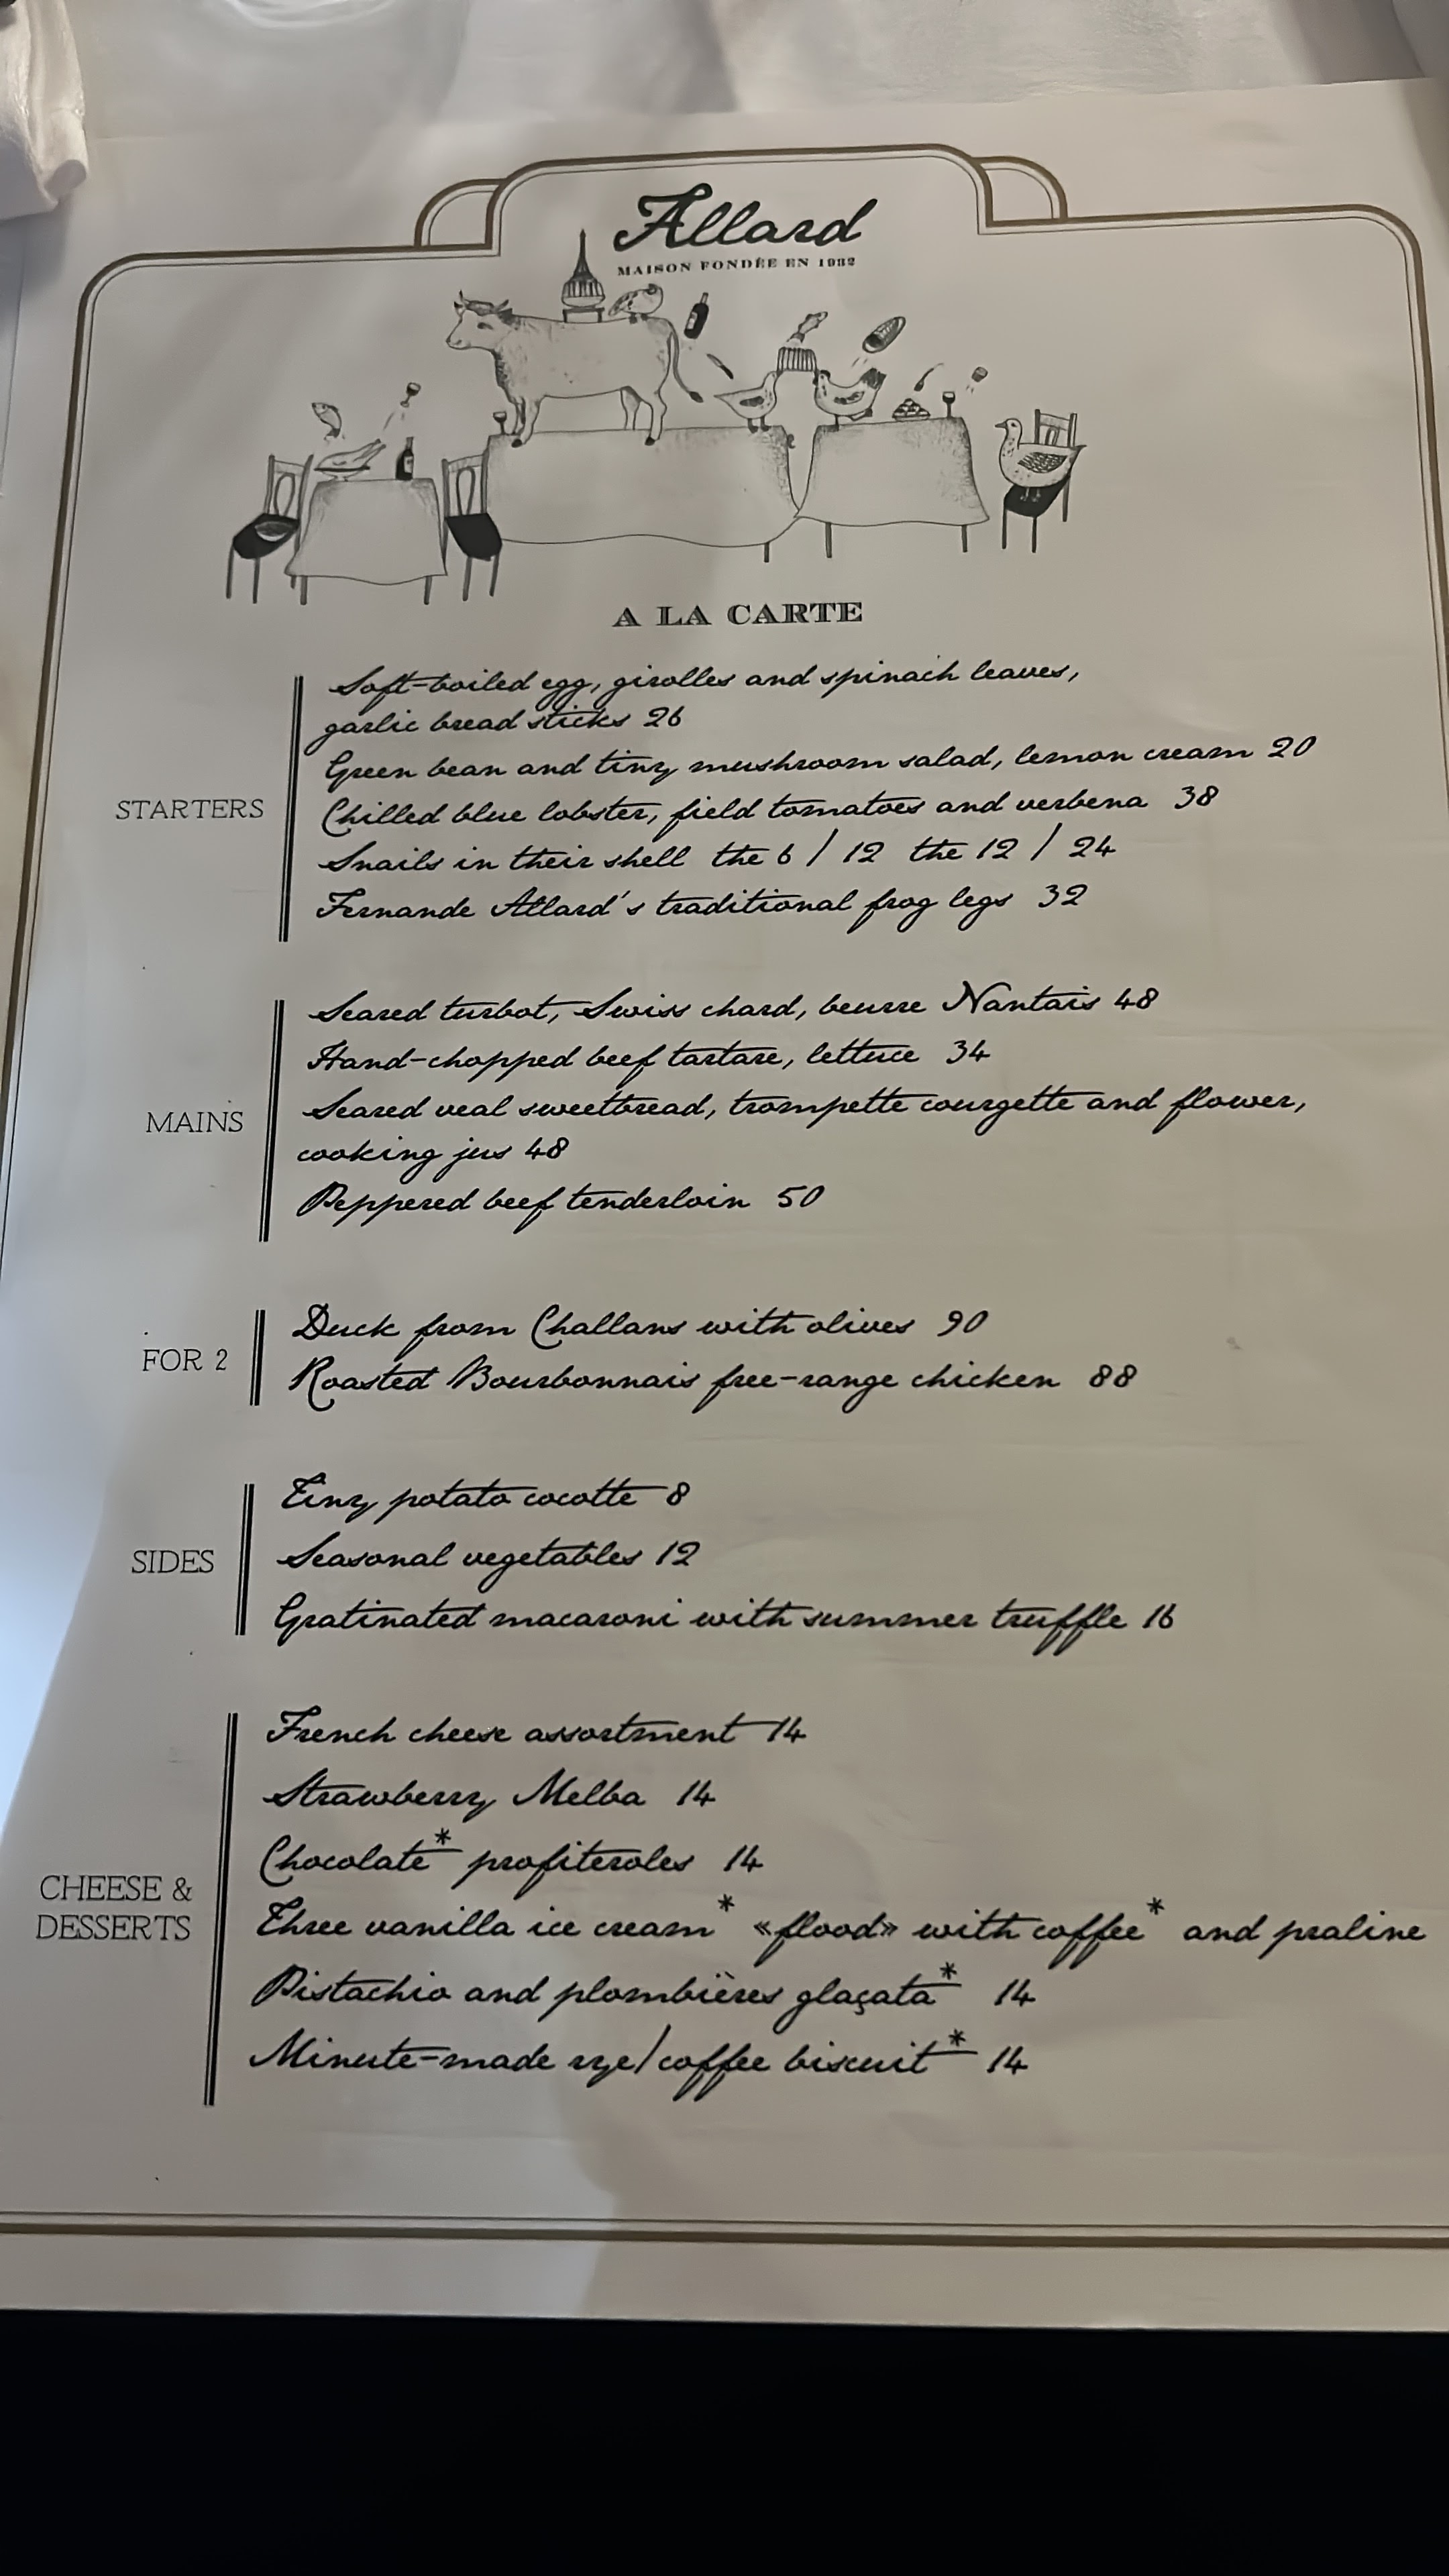 Allard
MAISON FONDÉE EN 1932
A LA CARTE
STARTERS
Soft-boiled egg, girolles and spinach leaves,
garlic bread sticks 26
Green bean and tiny mushroom salad, lemon cream 20
Chilled blue lobster, field tomatoes and verbena 38
Snails in their shell the 6 / 12 the 12 / 24
Fernande Allard's traditional frog legs 32
MAINS
Seared turbot, Swiss chard, beurre Nantais 48
Hand-chopped beef tartare, lettuce 34
Seared veal sweetbread, trompette courgette and flower,
cooking jus 48
Peppered beef tenderloin 50
FOR 2
Duck from Challans with olives 90
Roasted Bourbonnais free-range chicken 88
SIDES
Tiny potato cocotte 8
Seasonal vegetables 12
Gratinated macaroni with summer truffle 16
CHEESE &
DESSERTS
French cheese assortment 14
Strawberry Melba 14
Chocolate* profiteroles 14
Three vanilla ice cream* «flood» with coffee* and praline
Pistachio and plombières glaçata* 14
Minute-made rye/coffee biscuit* 14